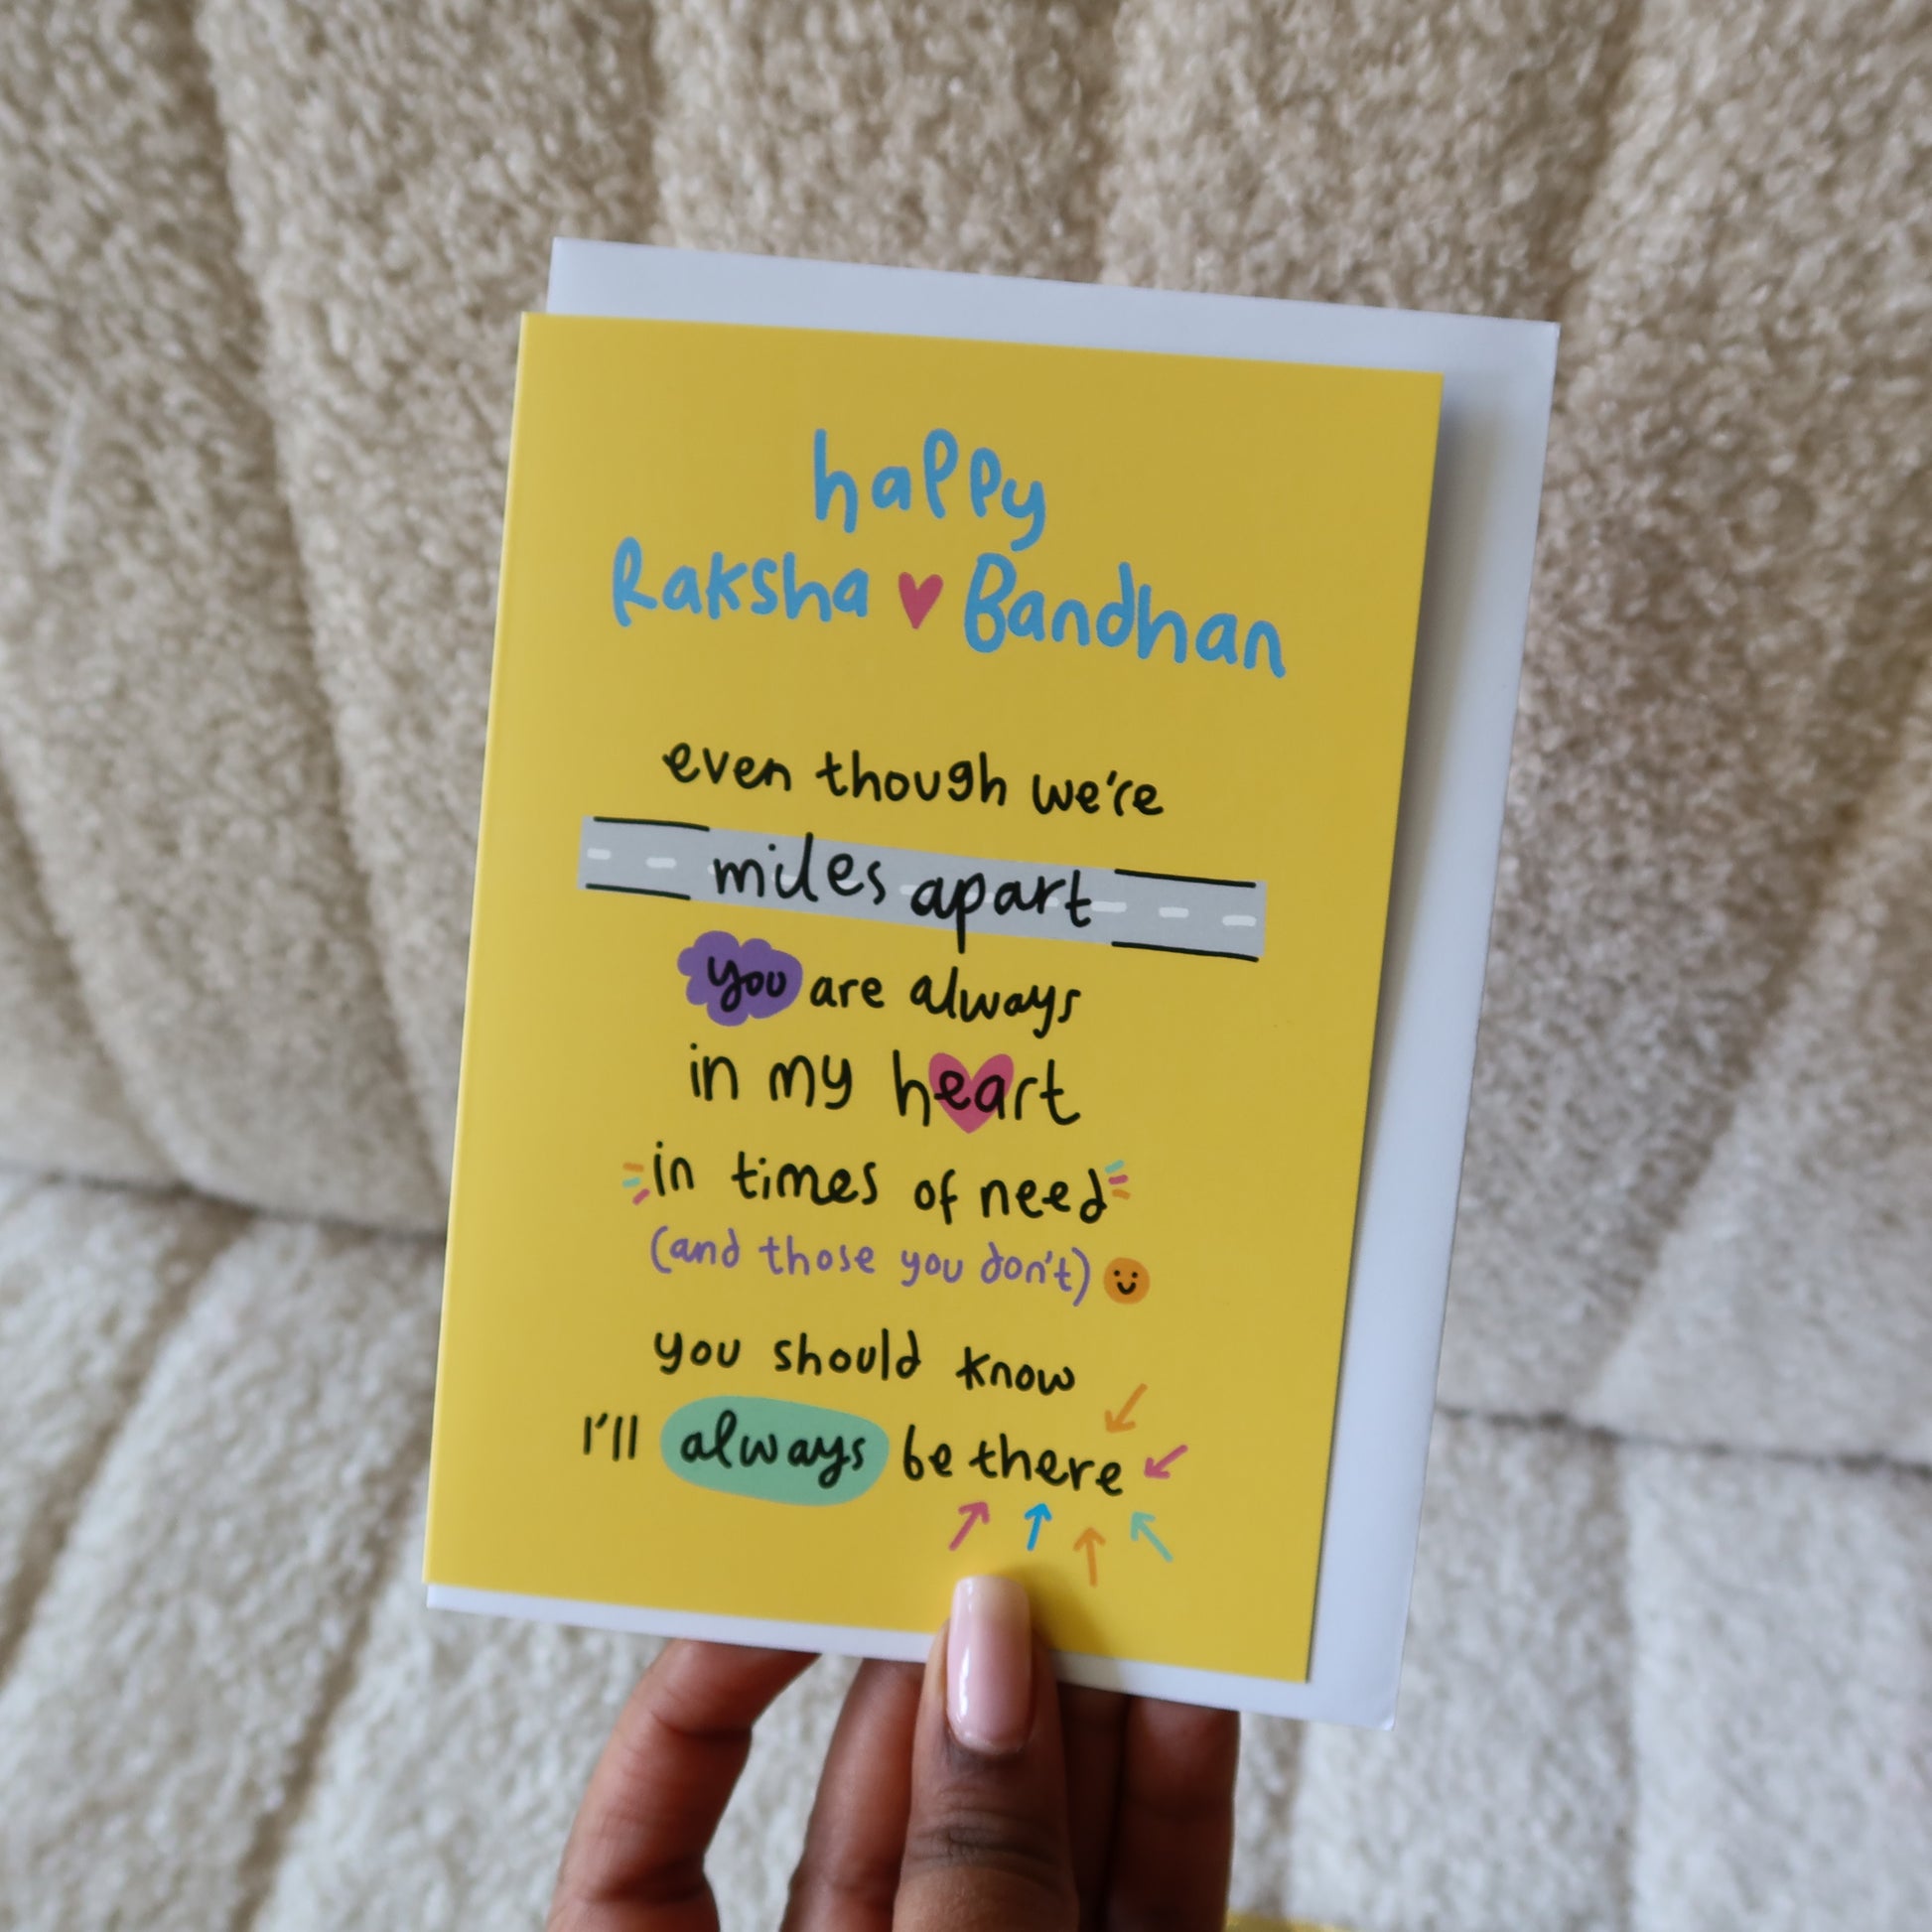 happy
Raksha Bandhan
even though we're
miles apart
you are always
in my heart
in times of need
(and those you don't)
you should know
I'll always be there